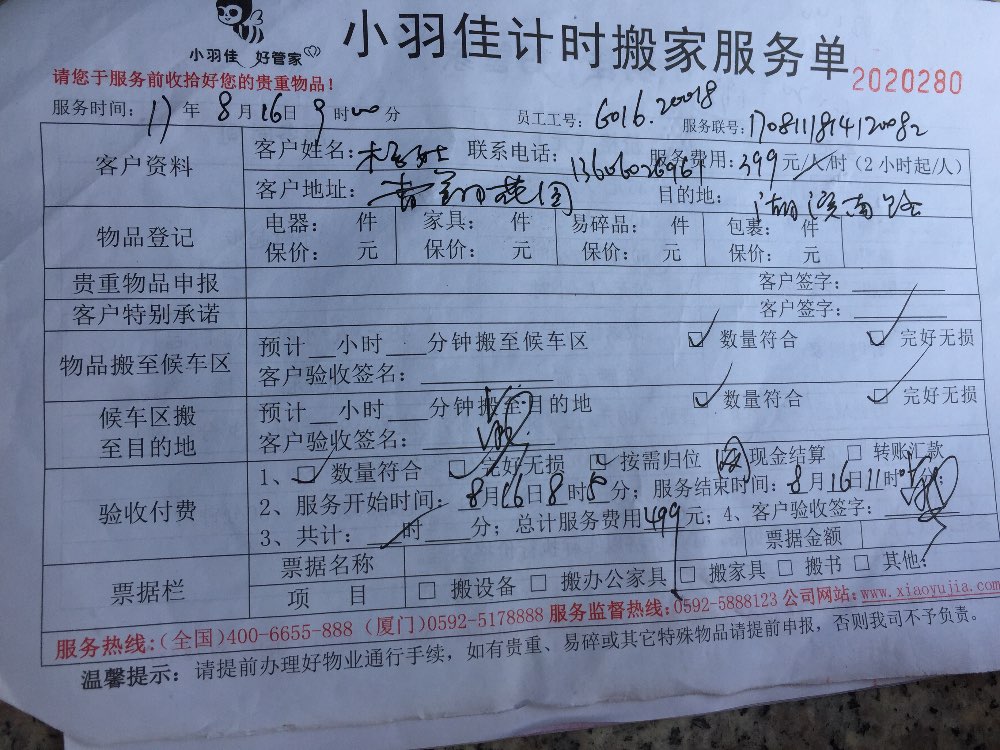 小羽佳 好管家
小羽佳计时搬家服务单
2020280
请您于服务前收拾好您的贵重物品!
服务时间: 17 年 8 月 16 日 9 时 00 分 员工工号: G016.20018 服务联号: 1708111814120082
客户资料
客户姓名: 联系电话: 13606026961 服务费用: 399 元/人/时 (2小时起/人)
客户地址: 花园 目的地: 湖滨南路
物品登记
电器: 件 家具: 件 易碎品: 件 包裹: 件
保价: 元 保价: 元 保价: 元 保价: 元
贵重物品申报 客户签字:
客户特别承诺 客户签字:
物品搬至候车区
预计__小时___分钟搬至候车区 数量符合 完好无损
客户验收签名:
候车区搬至目的地
预计__小时___分钟搬至目的地 数量符合 完好无损
客户验收签名:
验收付费
1、 数量符合 完好无损 按需归位 现金结算 转账汇款
2、服务开始时间: 8月16日8时 分; 服务结束时间: 8月16日11时 分;
3、共计: 时 分; 总计服务费用499元; 4、客户验收签字:
票据栏
票据名称 票据金额
项 目 搬设备 搬办公家具 搬家具 搬书 其他:
服务热线:(全国)400-6655-888 (厦门)0592-5178888 服务监督热线:0592-5888123 公司网站:www.xiaoyujia.com
温馨提示: 请提前办理好物业通行手续，如有贵重、易碎或其它特殊物品请提前申报，否则我司不予负责。